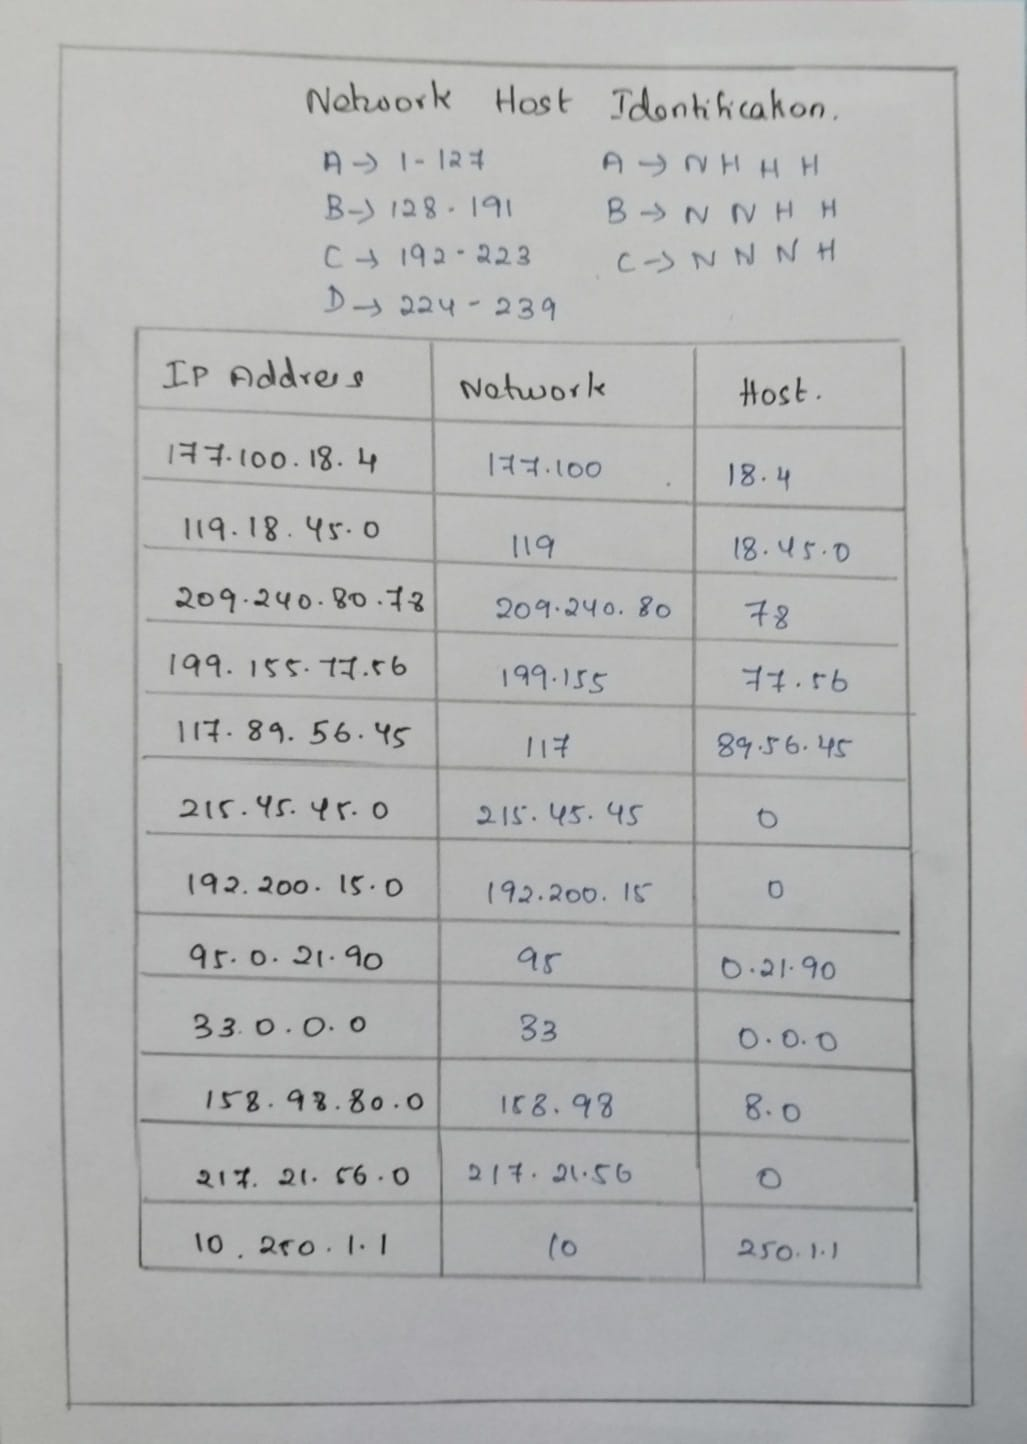 Network Host Identification.
A → 1 - 127 A → N H H H
B → 128 - 191 B → N N H H
C → 192 - 223 C → N N N H
D → 224 - 239
IP Address Network Host.
177.100.18.4 177.100 18.4
119.18.45.0 119 18.45.0
209.240.80.78 209.240.80 78
199.155.77.56 199.155 77.56
117.89.56.45 117 89.56.45
215.45.45.0 215.45.45 0
192.200.15.0 192.200.15 0
95.0.21.90 95 0.21.90
33.0.0.0 33 0.0.0
158.98.80.0 158.98 8.0
217.21.56.0 217.21.56 0
10.250.1.1 10 250.1.1